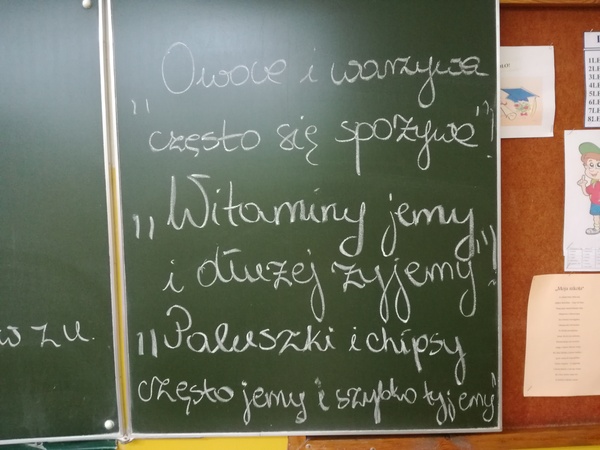 Owoce i warzywa
"często się spożywa"!
"Witaminy jemy
i dłużej żyjemy"!
"Paluszki i chipsy
często jemy i szybko tyjemy"
w z u.
"Moja szkoła"